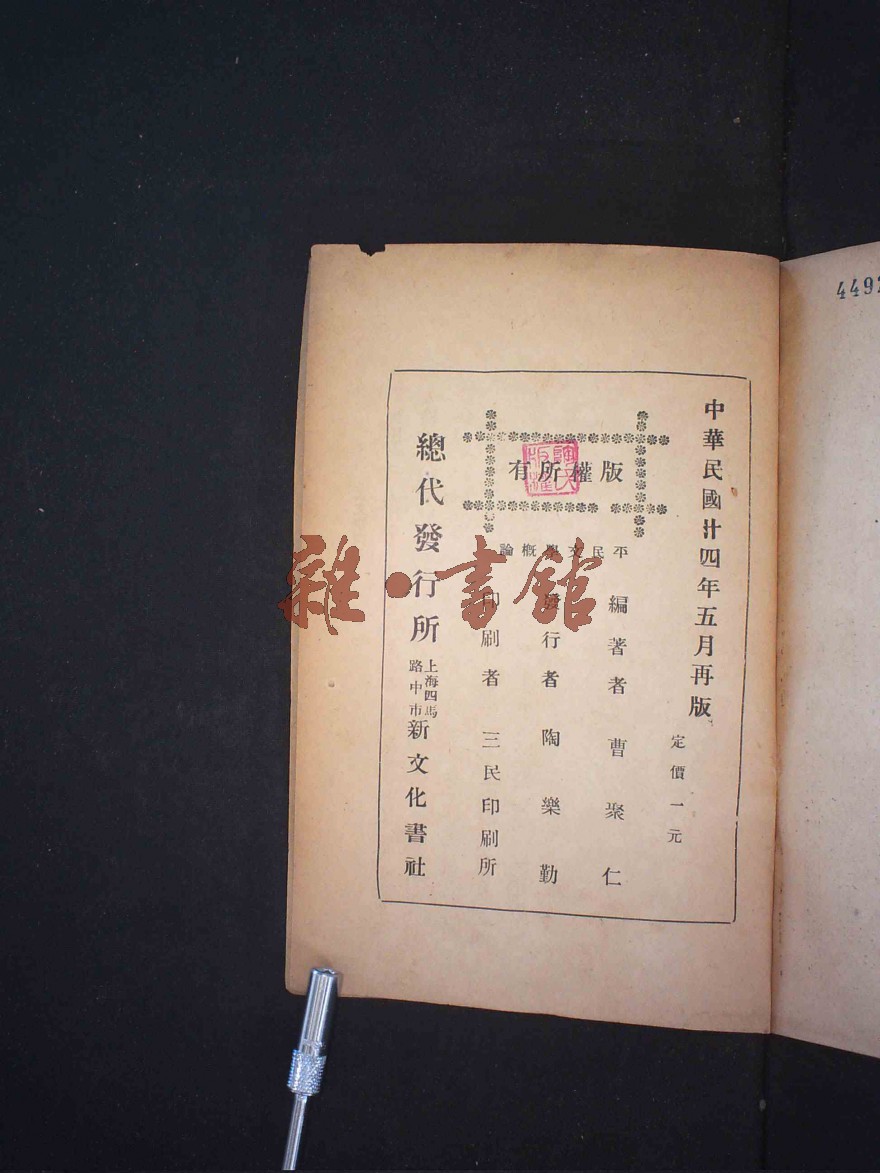 中華民國廿四年五月再版
定價一元
版權所有
平民文學概論
編著者 曹聚仁
發行者 陶樂勤
印刷者 三民印刷所
總代發行所 上海四馬路中市 新文化書社
雜·書館